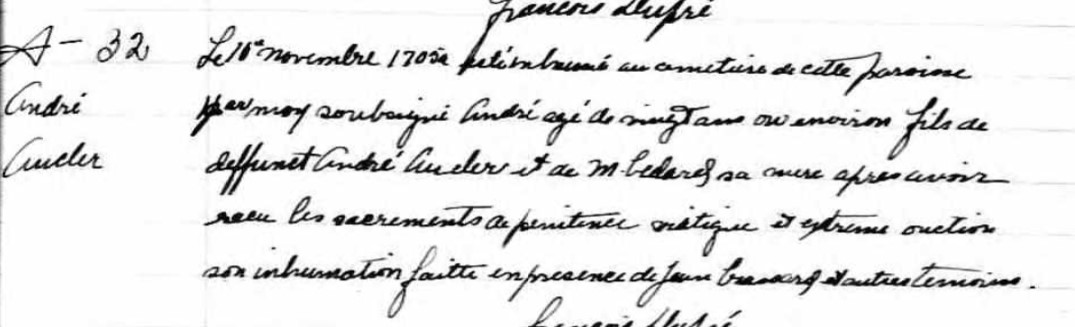 François Dupré
A - 32
André
Aucler
Le 10e novembre 1705 a esté inhumé au cemetiere de cette paroisse
par moy soubsigné André agé de vingt ans ou environ fils de
deffunct André Aucler et de M. Bedard sa mere apres avoir
receu les sacrements de penitence viatique et extreme onction
son inhumation faitte en presence de Jean Brassard et autres temoins.
François Dupré